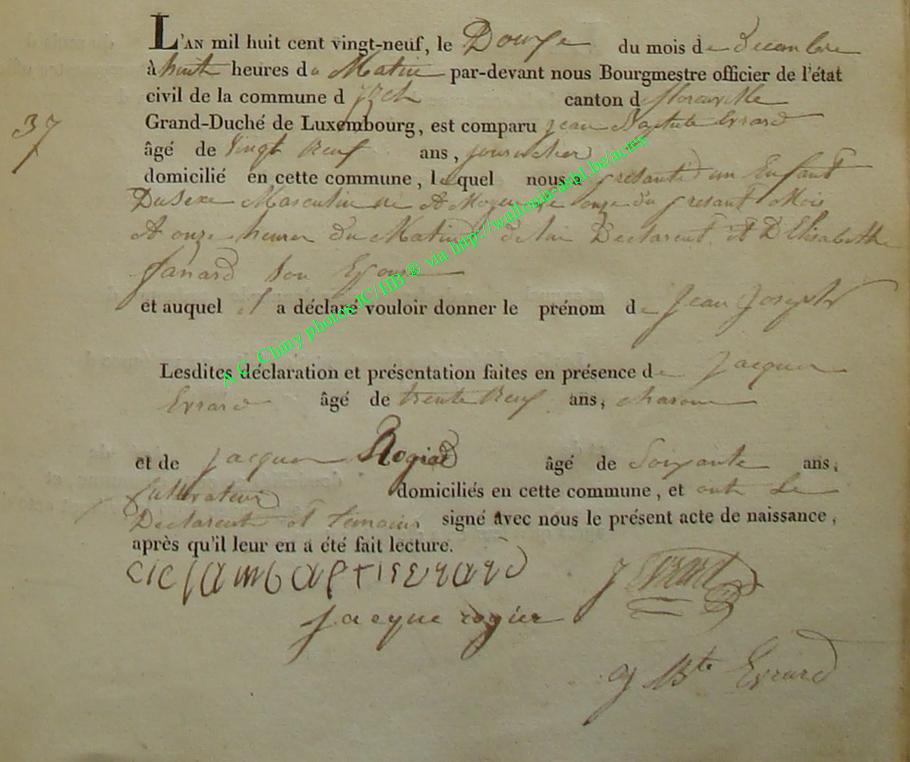 L'AN mil huit cent vingt-neuf, le Douze du mois de Decembre
à huit heures du Matin par-devant nous Bourgmestre officier de l'état
civil de la commune d canton d florenville
37
Grand-Duché de Luxembourg, est comparu jean Baptiste Evrard
âgé de Vingt Neuf ans, journalier
domicilié en cette commune, lequel nous a presanté un Enfant
Du Sexe Masculin né A Moyen le onze du presant Mois
A onze heures du Matin de lui Declarent et D'Elisabethe
Janard Son Epouse
et auquel il a déclaré vouloir donner le prénom de Jean Joseph
A C Chiny photos JC/HB ® via http://wallonie-ardal.be/actes
Lesdites déclaration et présentation faites en présence de Jacques
Evrard âgé de trente Neuf ans, charon
et de jacques Rogier âgé de Soixante ans,
Cultivateur domiciliés en cette commune, et ont Le
Declarent et temoins signé avec nous le présent acte de naissance,
après qu'il leur en a été fait lecture.
J Evrard
jacque rogier
J Bte Evrard